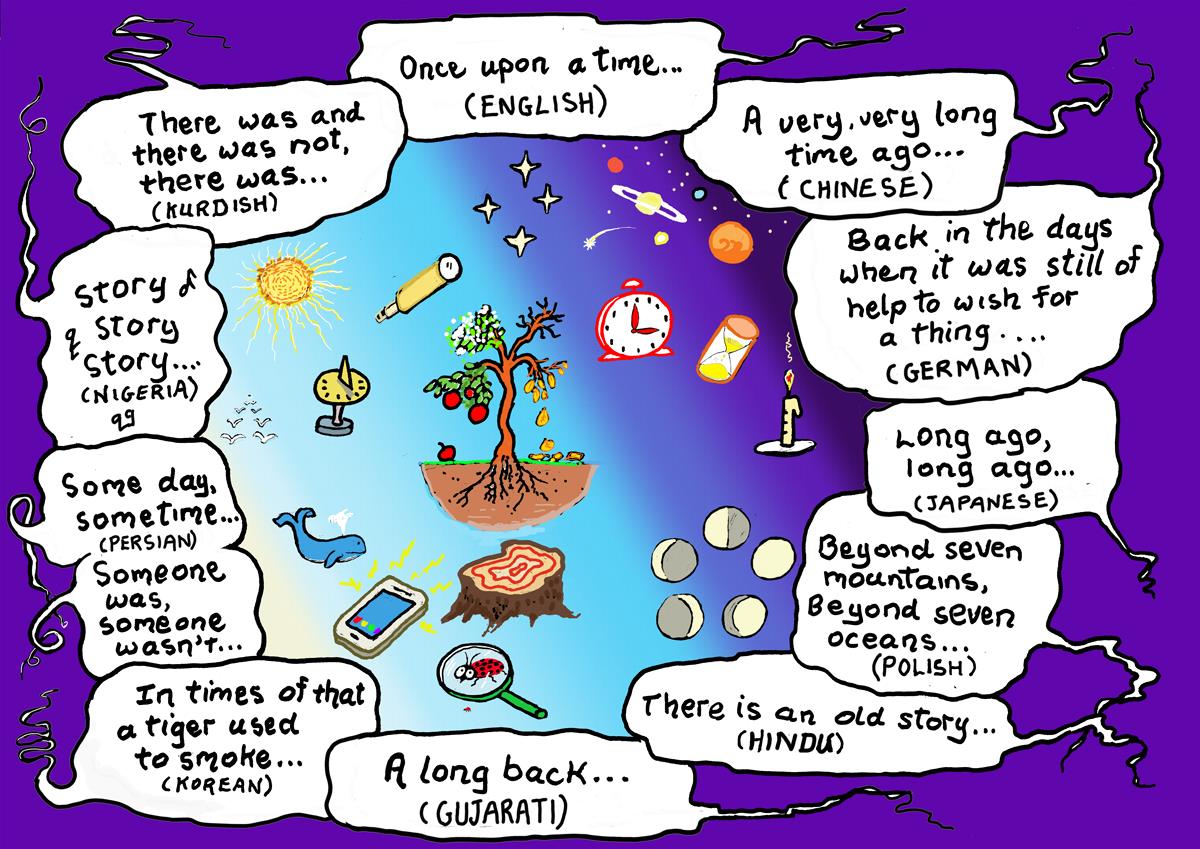 Once upon a time...
(ENGLISH)
A very, very long
time ago...
(CHINESE)
Back in the days
when it was still of
help to wish for
a thing....
(GERMAN)
Long ago,
long ago...
(JAPANESE)
Beyond seven
mountains,
Beyond seven
oceans...
(POLISH)
There is an old story...
(HINDU)
A long back...
(GUJARATI)
In times of that
a tiger used
to smoke...
(KOREAN)
Someone
was,
someone
wasn't...
Some day,
sometime...
(PERSIAN)
Story
story
story....
(NIGERIA)
There was and
there was not,
there was...
(KURDISH)